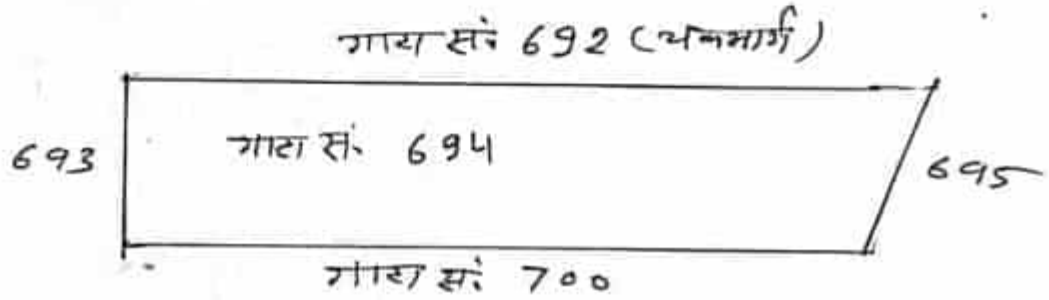 गाटा सं. 692 (चकमार्ग)
693
गाटा सं. 694
695
गाटा सं. 700